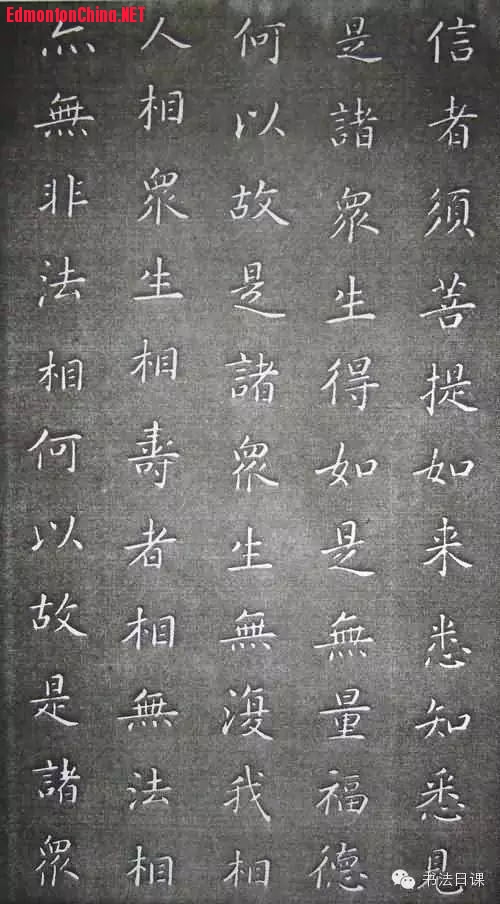 EdmontonChina.NET
信者須菩提如来悉知悉見
是諸衆生得如是無量福德
何以故是諸衆生無復我相
人相衆生相壽者相無法相
亦無非法相何以故是諸衆
书法日课